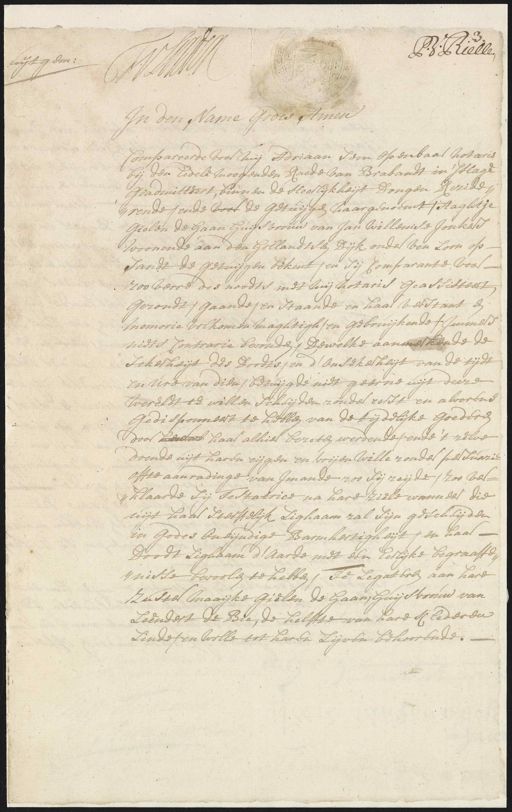 3
In den Name Goods Amen
Compareerde voor mij Adriaan van Opdenbaal Notaris
bij den Edele Mogenden Raede van Brabandt in s'Hage
Geadmitteert, binnen de Heerlijkheijt Dongen Reside-
rende, ende voor de Getuijge naargenoemt, Aaghtje
Gielen de Gaan Huijsvrouw van Jan Willemse
woonende aan den Hollandsen Dijk onder Loon op
Sandt de Getuijgen bekent, en Sij Comparante
zoo verre doenoodts met mij Notaris Geassisteert
Gezondt, Gaande, en Staande en haar verstant
memorie volkomen maghtigh, en Gebruijkende
niets Contrarie bevonde, Dewelke aanmerkende de
Sekerheijt des Doodts, en d'Onsekerheijt van de tijdt
en Ure van dien, betuijgde niet geerne uijt deze
Wereldt te willen Scheijden zonder eerst en alvorens
Gedisponeert te hebben van de tijdelijke Goederen
door haar alhier bezeten werdende, ende 't zelve
doende uijt haren eijgen en vrijen Wille zonder persuasie
ofte aanradinge van Imande zoo Sij zeijde, zoo ver-
klaarde Sij Testatrice na hare Ziele wanneer die
uijt haar Sterffelijk Lighaam zal Sijn gescheijden
in Godes Onbijndige Barmhertigheijt, en haar
Doodt Lighaam d'Aarde met een Eerlijke begraaffe-
nisse bevolen te hebben, Te Legateeren aan hare
Zuster Maaijke Gielen de Gaan, Huijsvrouw van
Leendert de Bie, de helfte van hare Klederen
Linde, en Wolle tot haren Lijve behoorende.